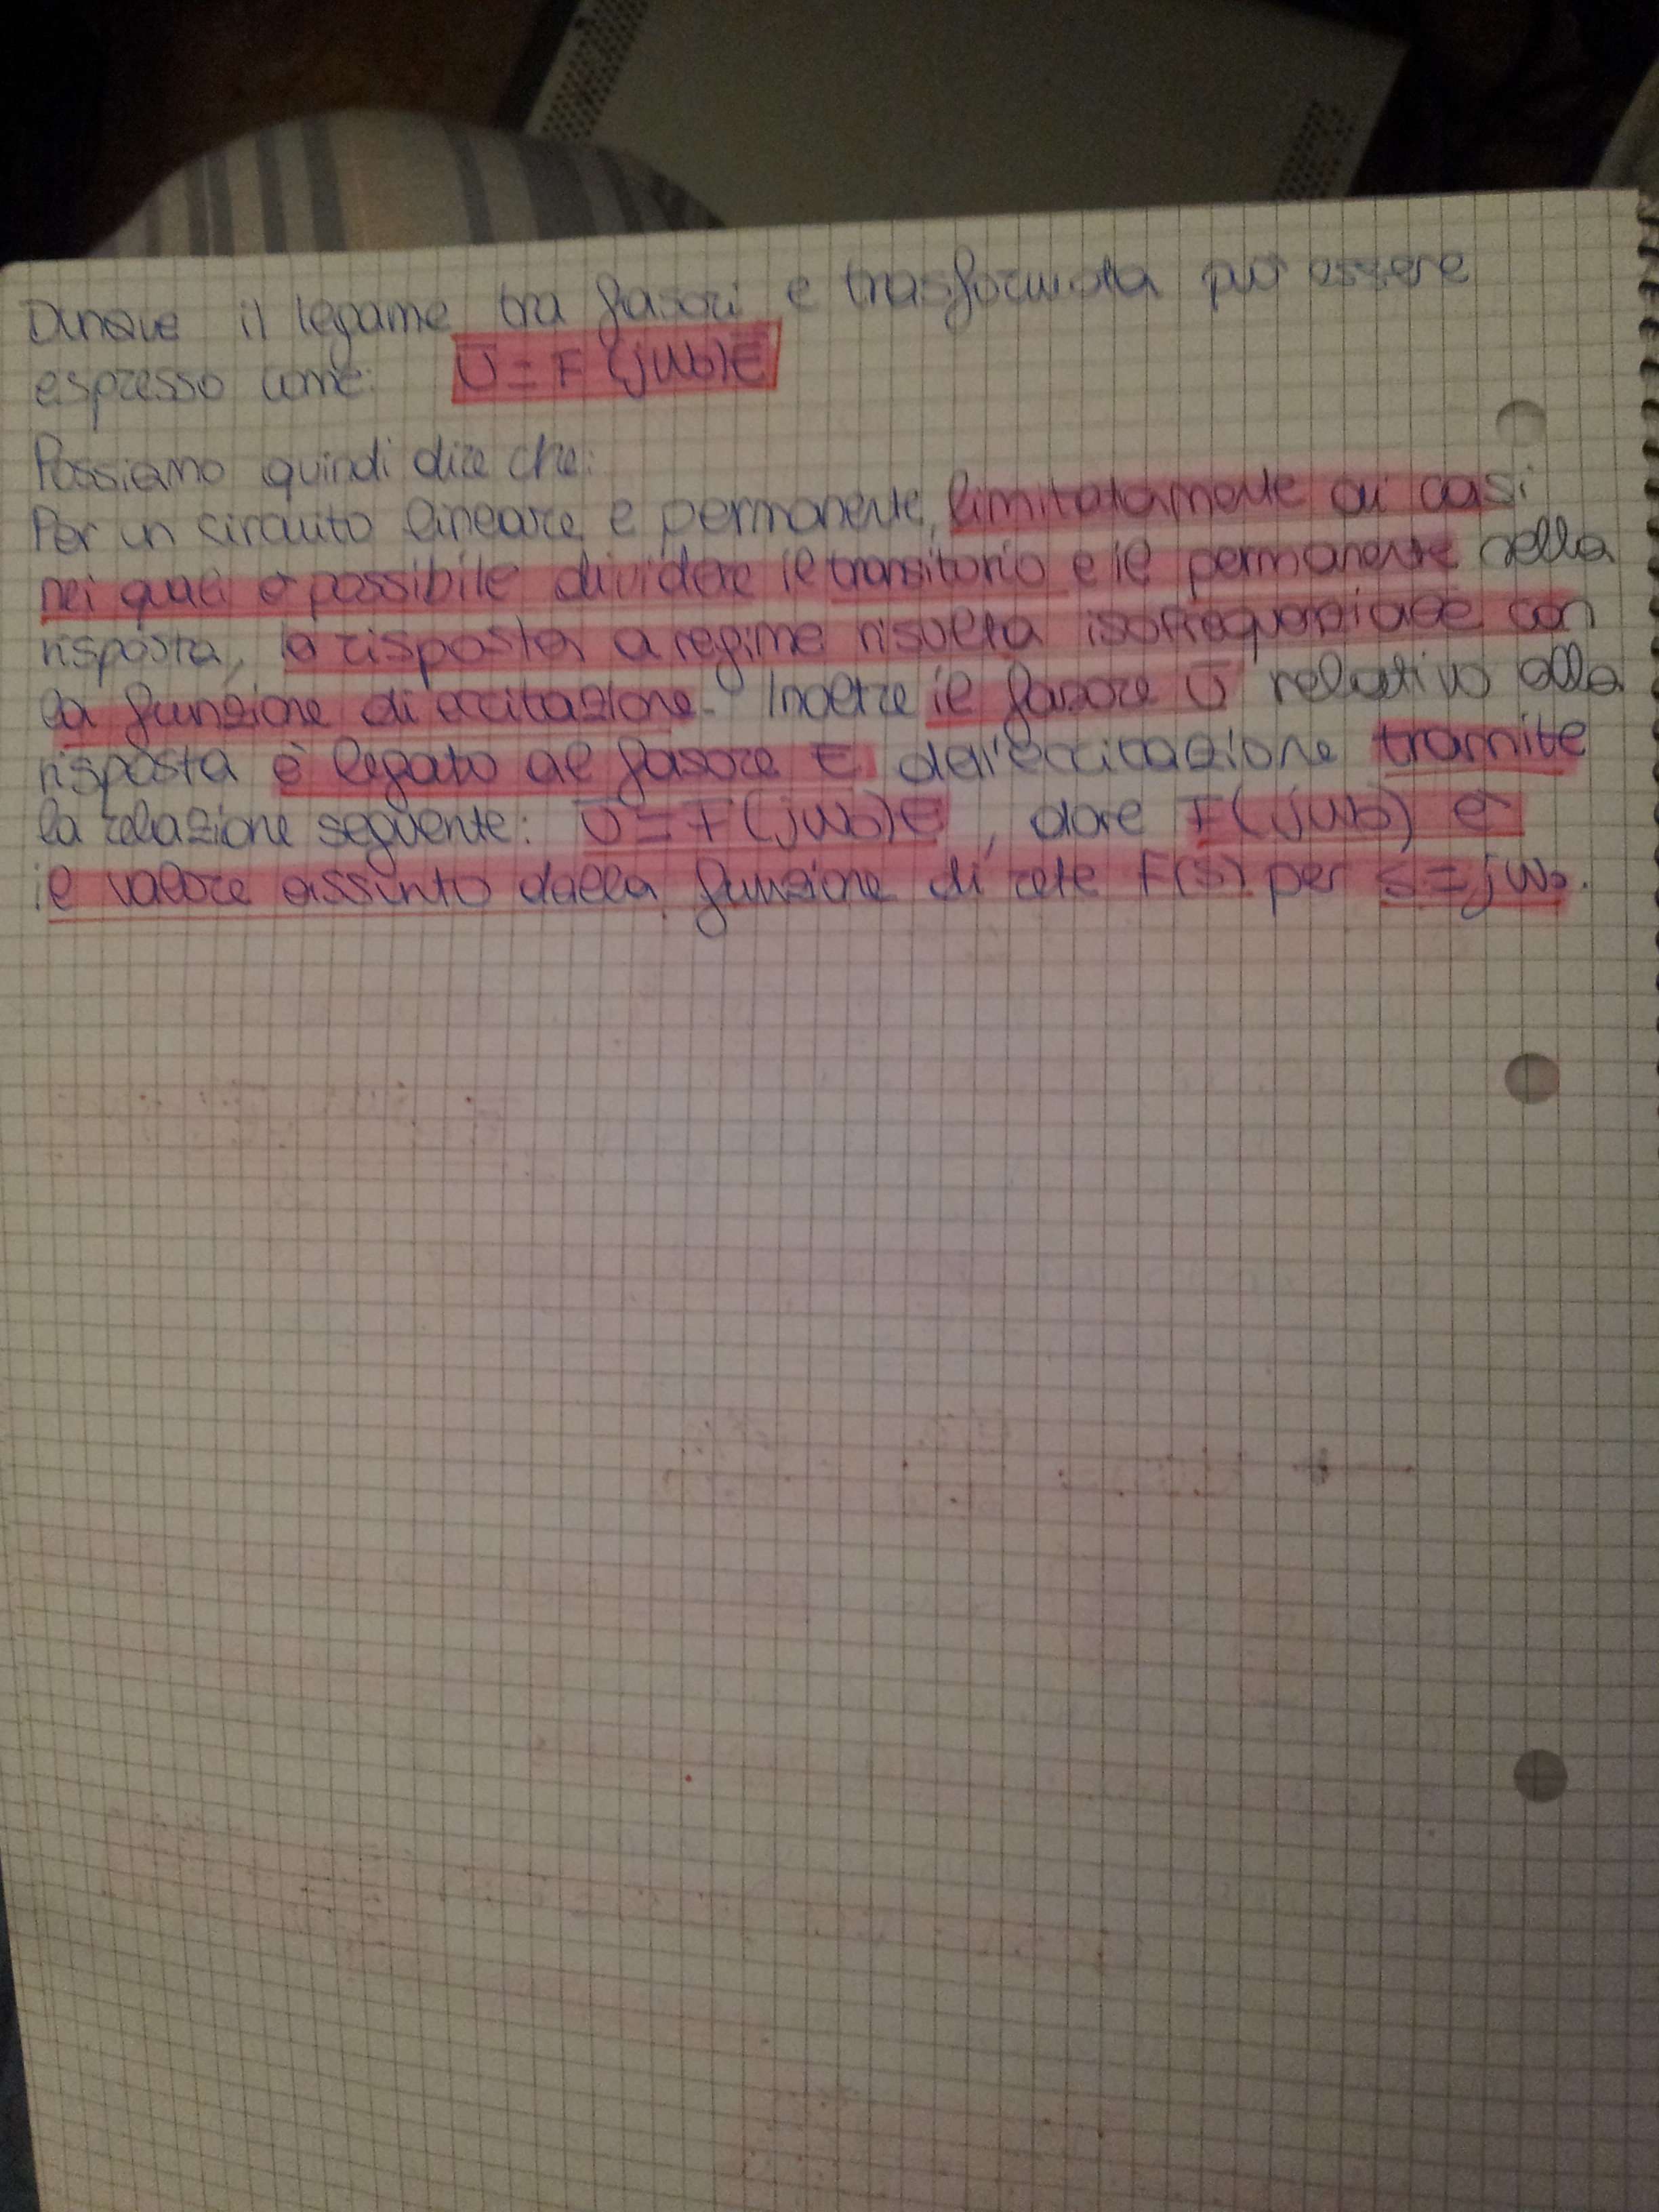 Dunque il legame tra fasori e trasformata può essere
espresso come: U̅ = F(jω₀)E̅
Possiamo quindi dire che:
Per un circuito lineare e permanente, limitatamente ai casi
nei quali è possibile dividere il transitorio e il permanente nella
risposta, la risposta a regime risulta isofrequenziale con
la funzione di eccitazione. Inoltre il fasore U̅ relativo alla
risposta è legato al fasore E̅ dell'eccitazione tramite
la relazione seguente: U̅ = F(jω₀)E̅, dove F(jω₀) è
il valore assunto dalla funzione di rete F(s) per s=jω₀.